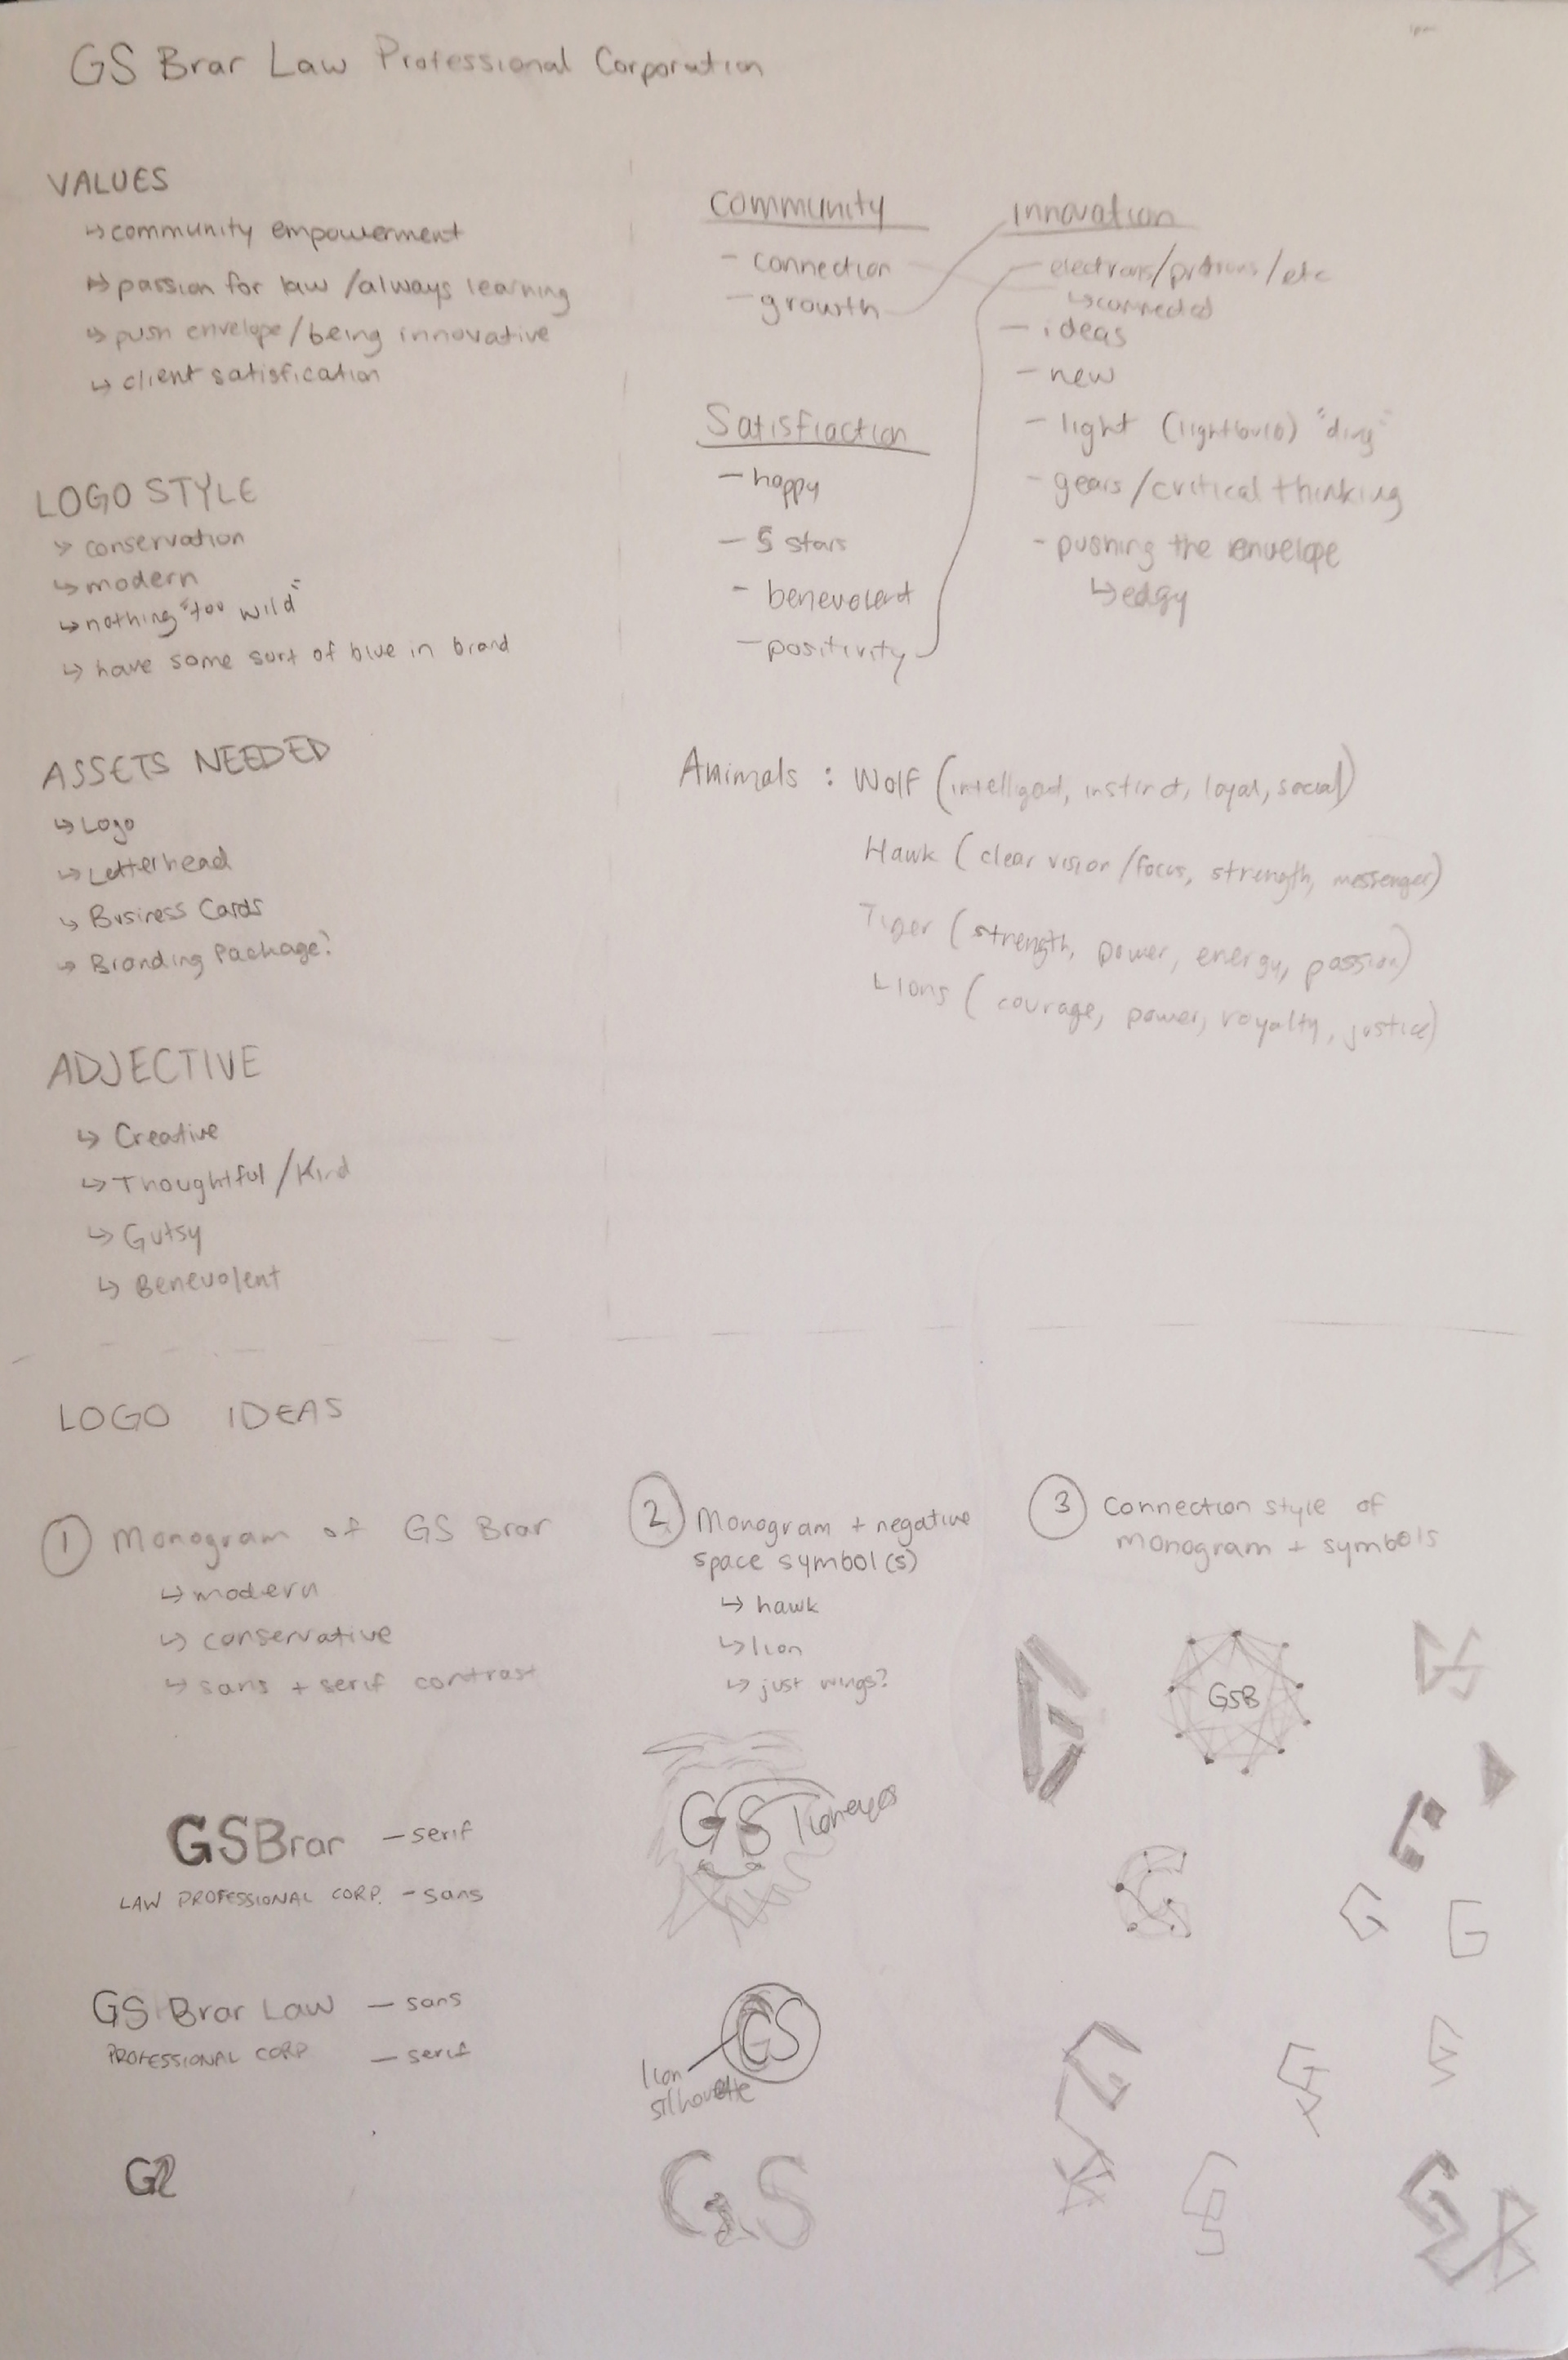 GS Brar Law Professional Corporation
VALUES
↳ community empowerment
↳ passion for law / always learning
↳ push envelope / being innovative
↳ client satisfication
LOGO STYLE
↳ conservation
↳ modern
↳ nothing "too wild"
↳ have some sort of blue in brand
ASSETS NEEDED
↳ Logo
↳ Letterhead
↳ Business Cards
↳ Branding Package?
ADJECTIVE
↳ Creative
↳ Thoughtful / Kind
↳ Gutsy
↳ Benevolent
community
- connection
- growth
Satisfiaction
- happy
- 5 stars
- benevolent
- positivity
innovation
- electrons/protons/etc
↳ connected
- ideas
- new
- light (lightbulb) "ding"
- gears / critical thinking
- pushing the envelope
↳ edgy
Animals : Wolf (intelligent, instinct, loyal, social)
Hawk (clear vision / focus, strength, messenger)
Tiger (strength, power, energy, passion)
Lions (courage, power, royalty, justice)
LOGO IDEAS
1 Monogram of GS Brar
↳ modern
↳ conservative
↳ sans + serif contrast
GSBrar - serif
LAW PROFESSIONAL CORP. - sans
GS Brar Law - sans
PROFESSIONAL CORP - serif
2 Monogram + negative
space symbol(s)
↳ hawk
↳ lion
↳ just wings?
GS lion eyes
GS
lion
silhouette
GS
3 Connection style of
monogram + symbols
GSB
G
G G